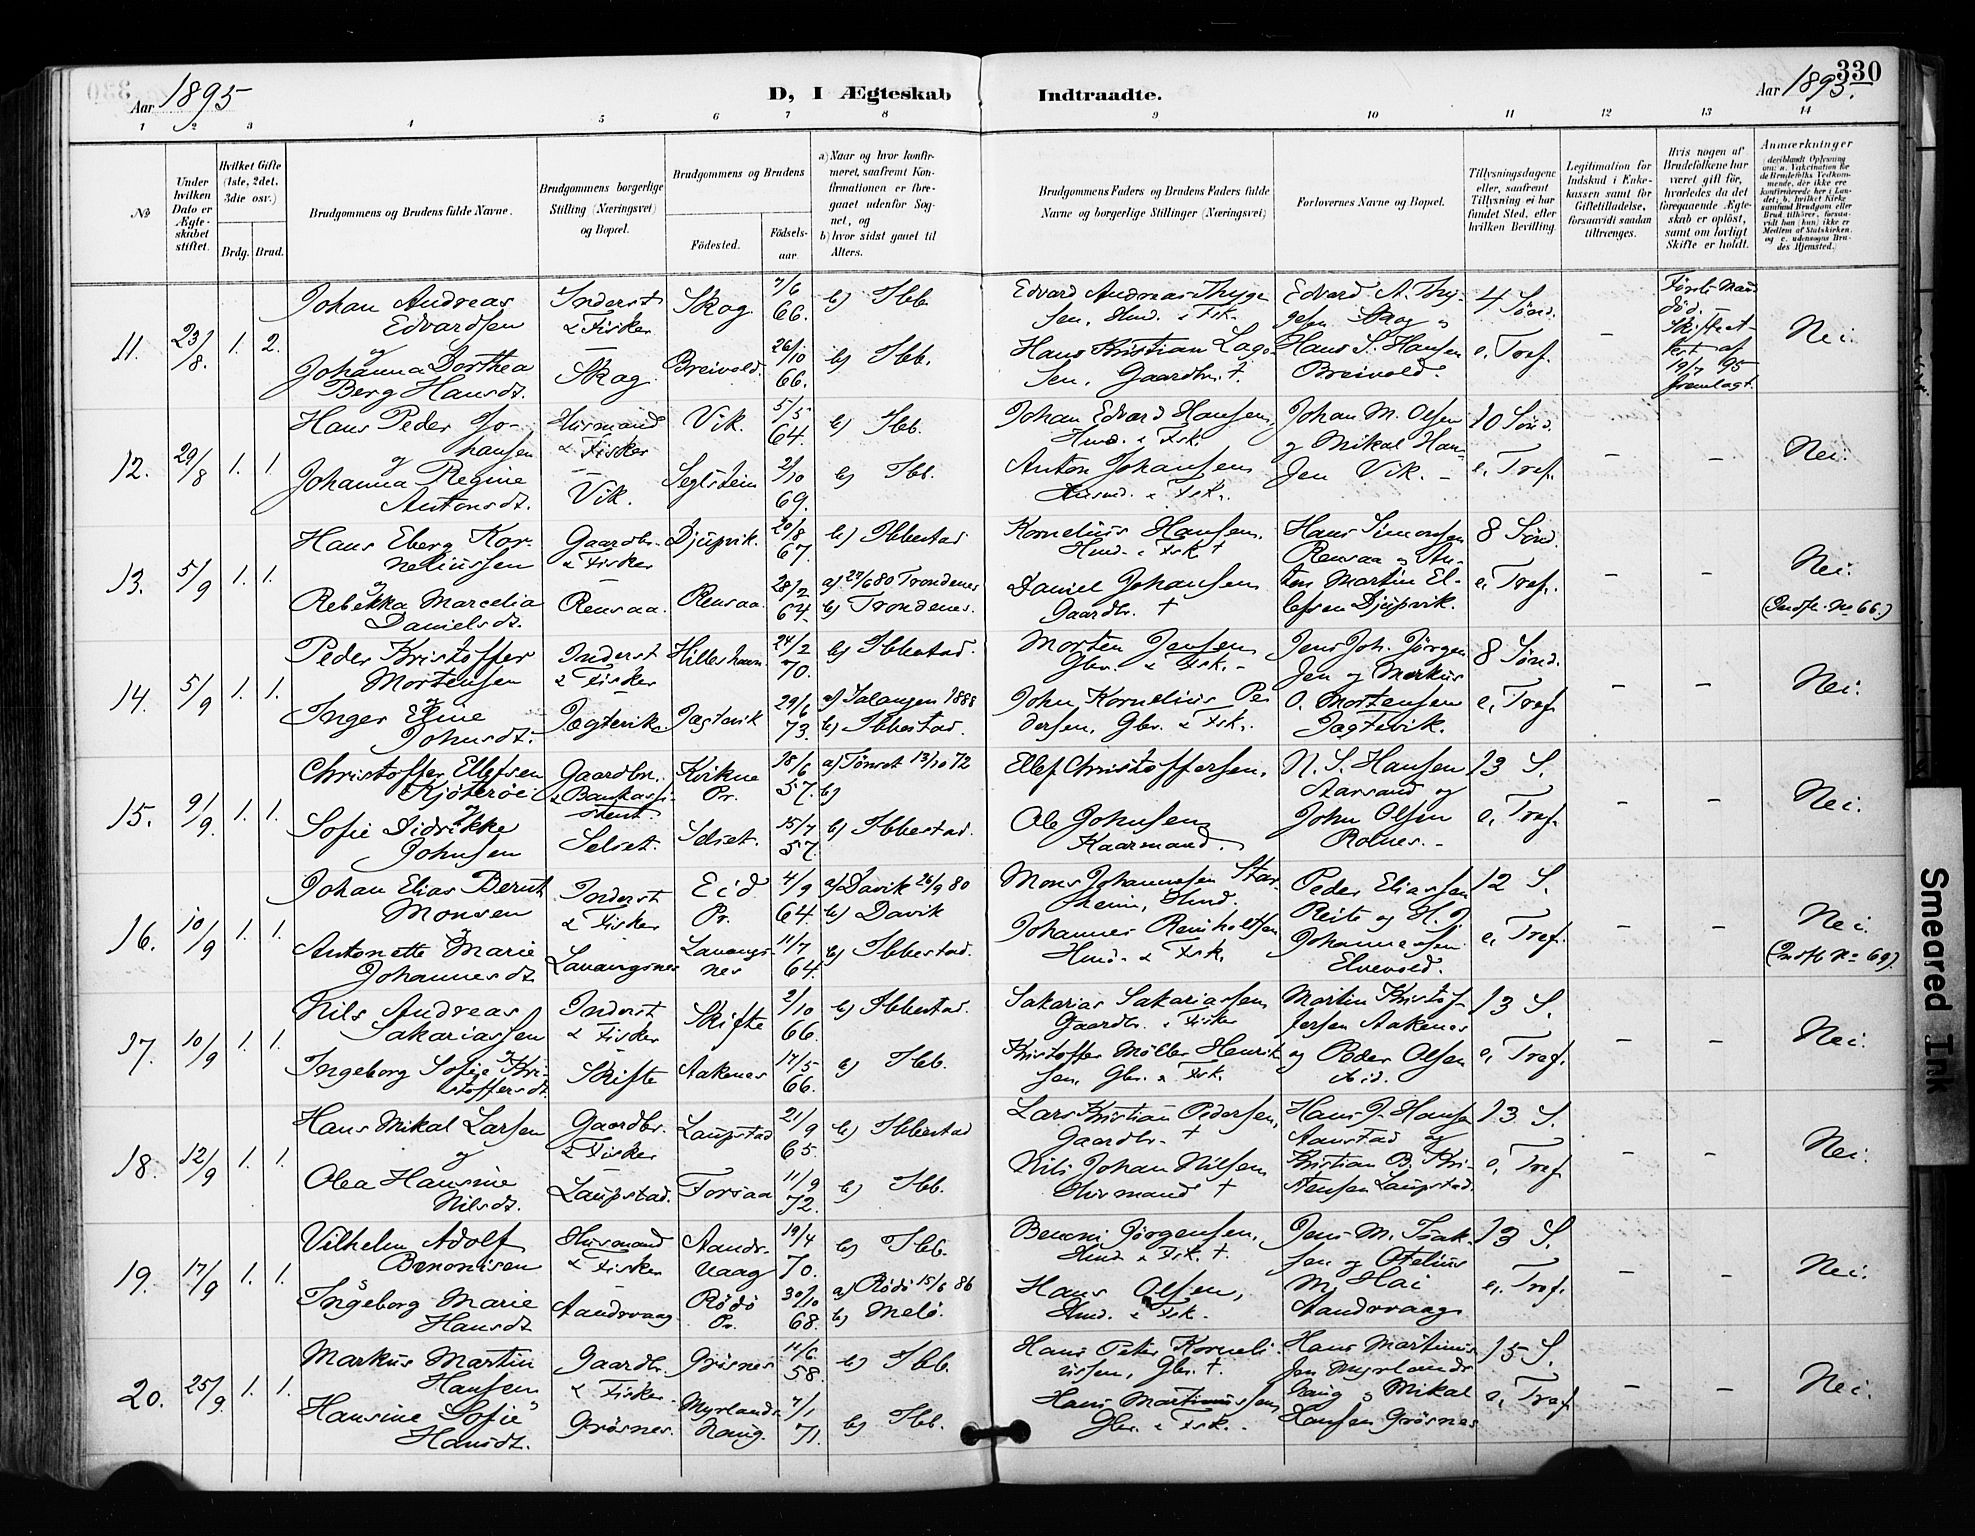 330
Aar 1895
D, I Ægteskab Indtraadte.
Aar 1895.
1 2 3 4 5 6 7 8 9 10 11 12 13 14
№
Under hvilken Dato er Ægteskabet stiftet.
Hvilket Gifte (1ste, 2det, 3die osv.)
Brdg. Brud.
Brudgommens og Brudens fulde Navne.
Brudgommens borgerlige Stilling (Næringsvei) og Bopæl.
Brudgommens og Brudens
Fødested.
Fødselsaar.
a) Naar og hvor konfirmeret, saafremt Konfirmationen er foregaaet udenfor Sognet, og
b) hvor sidst gaaet til Alters.
Brudgommens Faders og Brudens Faders fulde Navne og borgerlige Stillinger (Næringsvei)
Forlovernes Navne og Bopæl.
Tillysningsdagene eller, saafremt Tillysning ei har fundet Sted, efter hvilken Bevilling.
Legitimation for Indskud i Enkekassen samt for Giftetilladelse, forsaavidt saadan tiltrænges.
Hvis nogen af Brudefolkene har været gift før, hvorledes da det foregaaende Ægteskab er opløst, samt om lovligt Skifte er holdt.
Anmærkninger
11. 23/8. 1. 2.
Johan Andreas Edvardsen
og
Johanna Dorthea Berg Hansdt.
Inderst & Fisker
Skog
Skog. 7/6 66. b) Ibb.
Breivold. 26/10 66. b) Ibb.
Edvard Andreas Thygesen, Hmd. & Fsk.
Hans Kristian Lagesen, Gaardbr. †.
Edvard A. Thygesen Skog og
Hans S. Hansen Breivold.
4 Sønd. e. Tref.
–
Første Mand død. – Skifteattest af 19/7 95 fremlagt.
Nei.
12. 29/8 1. 1
Hans Peder Johansen
og
Johanna Regine Antonsdt.
Husmand & Fisker
Vik.
Vik. 5/5 64. b) Ibb.
Seglstein 2/10 69. b) Ibb.
Johan Edvard Hansen, Hmd. & Fsk.
Anton Johansen Husmd. & Fsk.
Johan M. Olsen og Mikal Hansen Vik. –
10 Sønd. e. Tref.
– –
Nei.
13. 5/9 1. 1.
Hans Eberg Korneliussen
og
Rebekka Marcelia Danielsdt.
Gaardbr. & Fisker
Rensaa.
Djupvik. 20/8 67. b) Ibbestad
Rensaa. 28/2 64. a) 27/6 80 Trondenes b) Trondenes.
Kornelius Hansen, Hmd. & Fsk †
Daniel Johansen Gaardbr. †
Hans Simonsen Rensaa og Anton Martin Ellefsen Djupvik.
8 Sønd. e. Tref.
– –
Nei.
(Indfl. No 66.)
14. 5/9 1. 1.
Peder Kristoffer Mortensen
og
Inger Eline Johnsdt.
Inderst & Fisker
Jægtevik
Hilleshavn 24/2 70. b) Ibbestad.
Jægtevik 29/6 73. a) Salangen 1888 b) Ibbestad.
Morten Jensen Gbr. & Fsk. –
John Kornelius Pedersen, Gbr. & Fsk.
Jens Joh. Jørgensen og Markus O. Mortensen Jægtevik.
8 Sønd. e. Tref
– –
Nei.
15. 9/9. 1. 1.
Christoffer Ellefsen Kjøterøe
og
Sofie Didrikke Johnsen
Gaardbr. & Bankassistent
Selset.
Kvikne Pr. 18/6 57. a) Tønset 13/10 72 b)
Selset. 15/7 57. b) Ibbestad.
Ellef Christoffersen.
Ole Johnsen Kaarmand.
N. S. Hansen Starsand og John Olsen Rolnes. –
13 S. e. Tref.
– –
Nei.
16. 10/9 1. 1.
Johan Elias Bernt Monsen
og
Antonette Marie Johannesdt
Inderst & Fisker
Lavangsnes
Eid Pr. 4/9 64. a) Davik 26/9 80 b) Davik
Lavangsnes 11/7 64. b) Ibbestad.
Mons Johannesen Starheim, Hmd.
Johannes Reinholtsen Hmd. & Fsk.
Peder Eliassen Reite og H. J. Johannessen Elvevold.
12 S. e. Tref.
– –
Nei.
(Indfl. No 69).
17. 10/9 1. 1.
Nils Andreas Sakariassen
og
Ingeborg Sofie Kristoffersdt.
Inderst & Fisker
Skifte
Skifte 2/10 66. b) Ibbestad.
Aakenes 17/5 66. b) Ibb.
Sakarias Sakariassen Gaardbr. & Fisker
Kristoffer Möller Henriksen, Gbr. & Fsk.
Martin Kristofersen Aakenes og Peder Olsen ibid.
13 S. e. Tref.
– –
Nei.
18. 12/9 1. 1.
Hans Mikal Larsen
og
Olea Hansine Nilsdt.
Gaardbr. & Fisker
Laupstad.
Laupstad 21/9 65. b) Ibbestad
Forsaa 11/9 72. b) Ibb.
Lars Kristian Pedersen, Gaardbr. †
Nils Johan Nilsen Husmand †
Hans J. Hansen Aanstad og Kristian B. Kristensen Laupstad.
13 S. e. Tref.
– –
Nei.
19. 17/9 1. 1.
Vilhelm Adolf Benonisen
Ingeborg Marie Hansdt
Husmand & Fisker
Aandervaag
Aandervaag 19/4 70. b) Ibb.
Rödö Pr. 30/10 68. a) Rödö 15/6 86 b) Melö.
Benoni Jörgensen, Hmd. & Fsk. †.
Hans Olsen, Hmd. & Fsk.
Jens M. Isaksen og Otelius M. Hai Aandervaag.
13 S. e. Tref.
– –
Nei.
20. 25/9. 1. 1.
Markus Martin Hansen
og
Hansine Sofie Hansdt.
Gaardbr. & Fisker
Grösnes.
Grösnes 11/6 58. b) Ibb.
Myrlandshaug. 7/1 71. b) Ibb.
Hans Peter Korneliussen, Gbr. †
Hans Martinussen Gbr. & Fsk. –
Hans Martinussen Myrlandshaug og Mikal Hansen Grösnes
15 S. e. Tref
– –
Nei.
Smeared Ink